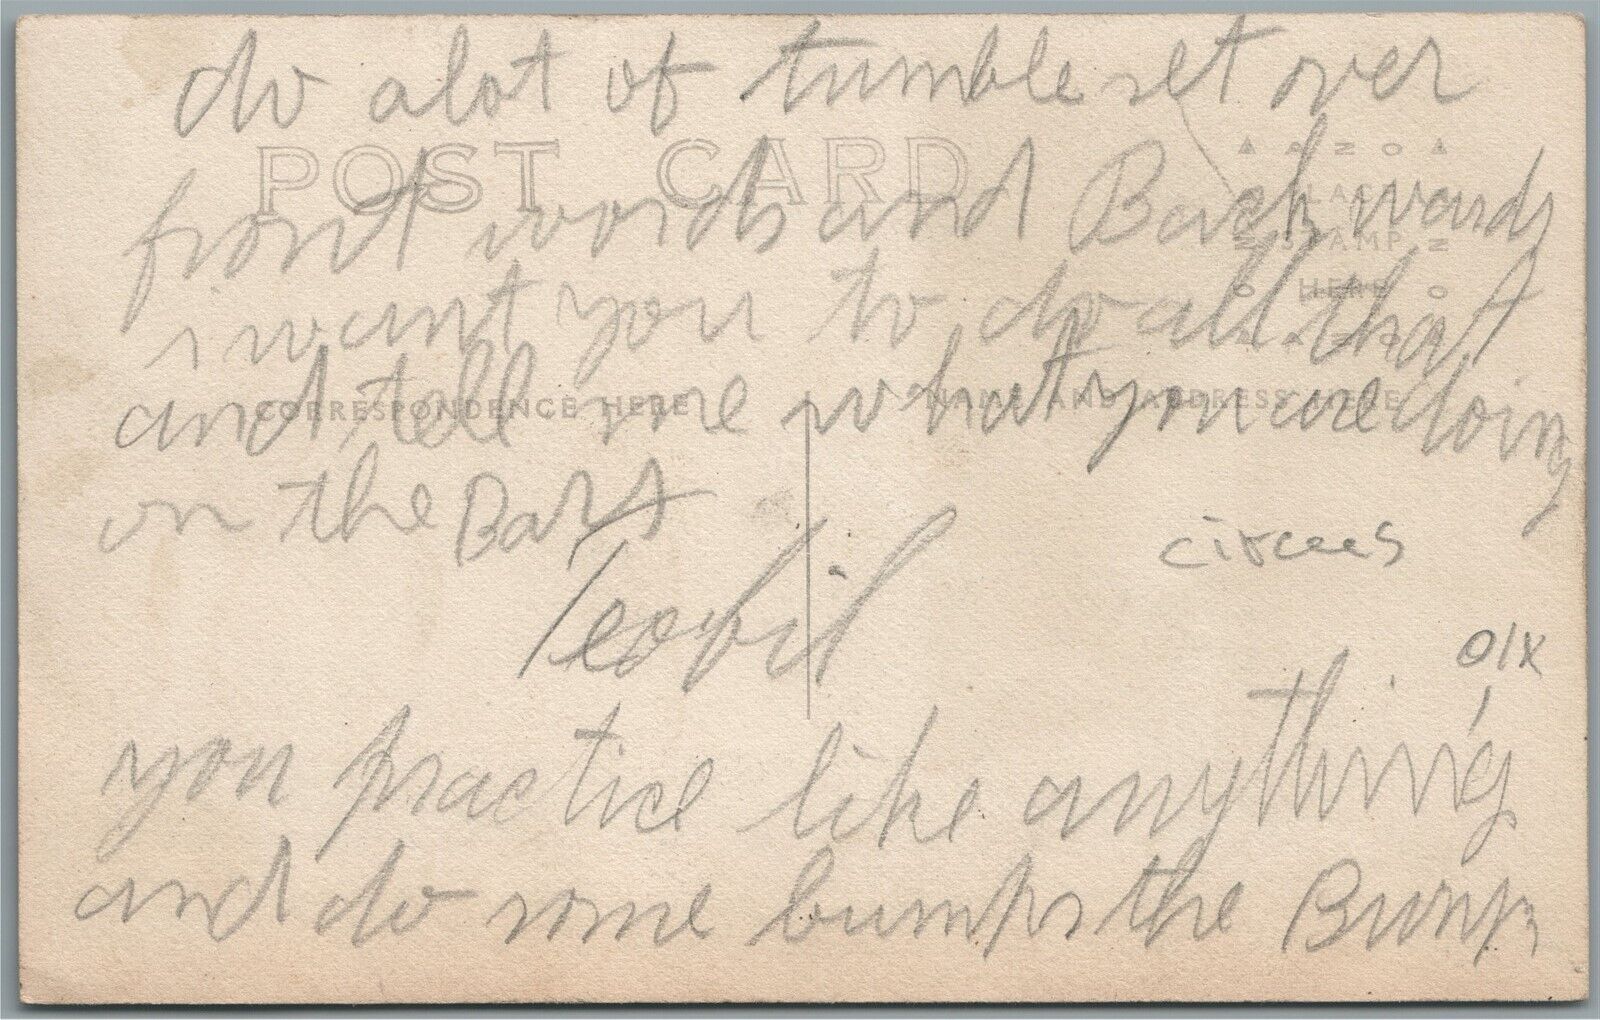 do alot of tumble set over
POST CARD
front words and Back wards
AZO
PLACE
STAMP
HERE
AZO
i want you to do all that
and tell me what you are doing
CORRESPONDENCE HERE
NAME AND ADDRESS HERE
on the Bars
Teofil
circus
O/X
you practice like anything
and do some bumps the Bump